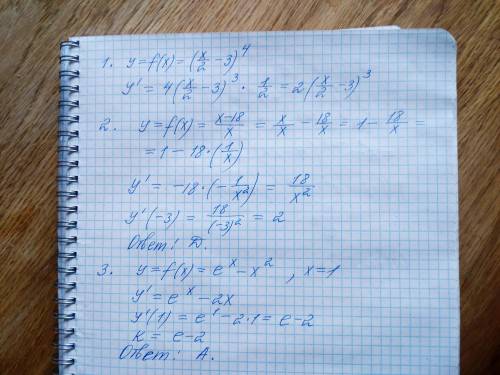 1. y = f(x) = (x/2 - 3)^4
y' = 4(x/2 - 3)^3 · 1/2 = 2(x/2 - 3)^3
2. y = f(x) = (x-18)/x = x/x - 18/x = 1 - 18/x =
= 1 - 18 · (1/x)
y' = -18 · (-1/x²) = 18/x²
y'(-3) = 18/(-3)² = 2
Ответ: Д.
3. y = f(x) = e^x - x², x=1
y' = e^x - 2x
y'(1) = e^1 - 2·1 = e-2
K = e-2
Ответ: А.